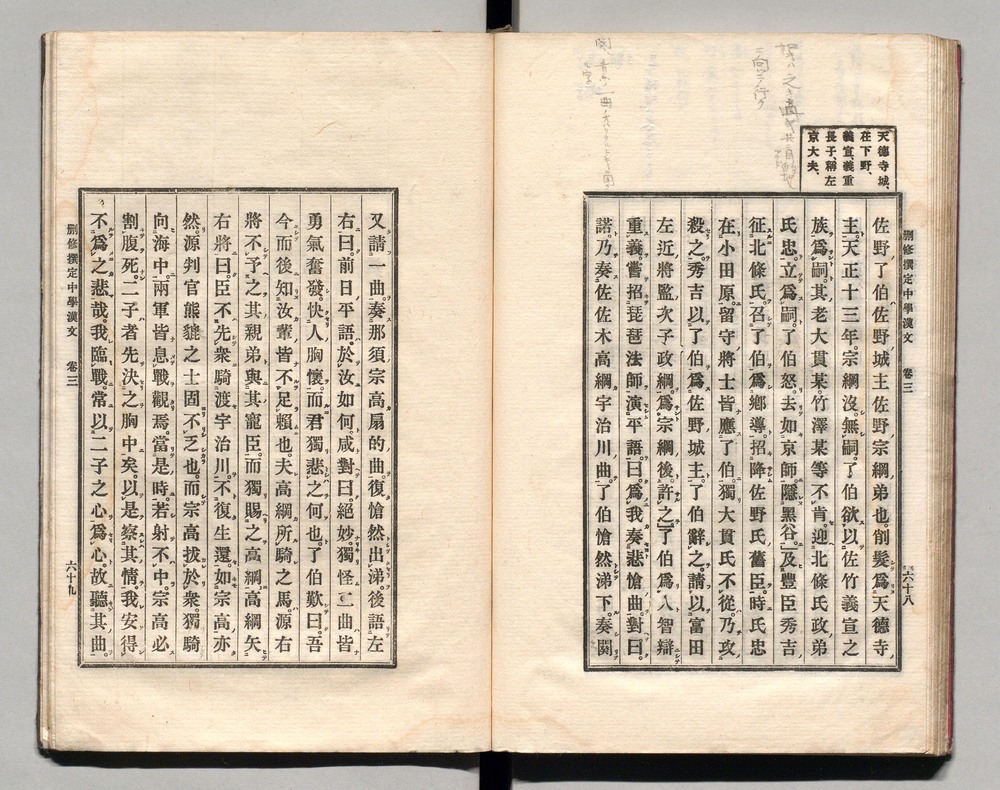 天德寺城、
在下野、
義宣、義重
長子、稱左
京大夫、
刪修撰定中學漢文 卷三
六十八
佐野了伯佐野城主佐野宗綱弟也。削髮爲天德寺
主。天正十三年。宗綱沒。無嗣。了伯欲以佐竹義宣之
族爲嗣。其老大貫某。竹澤某等不肯。迎北條氏政弟
氏忠。立爲嗣。了伯怒。去如京師。隱黑谷。及豐臣秀吉
征北條氏。召了伯爲鄉導。招降佐野氏舊臣。時氏忠
在小田原。留守將士皆應了伯。獨大貫氏不從。乃攻
殺之。秀吉以了伯爲佐野城主。了伯辭之。請以富田
左近將監次子政綱。爲宗綱後。許之。了伯爲人智辯
重義。嘗招琵琶法師演平語。曰。爲我奏悲愴曲。對曰。
諾。乃奏佐佐木高綱宇治川曲。了伯愴然涕下。奏闋
又請一曲。奏那須宗高扇的曲。復愴然出涕。後語左
右曰。前日平語。於汝如何。咸對曰。絕妙。獨怪二曲皆
勇氣奮發。快人胸懷。而君獨悲之何也。了伯歎曰。吾
今而後知汝輩皆不足賴也。夫高綱所騎之馬。源右
將不予之其親弟與其寵臣。而獨賜之高綱。高綱矢
右將曰。臣不先衆騎渡宇治川。不復生還。如宗高亦
然。源判官熊貔之士固不乏也。而宗高拔於衆。獨騎
向海中。兩軍皆息戰觀焉。當是時。若射不中。宗高必
割腹死。二子者先決之胸中矣。以是察其情。我安得
不爲之悲哉。我臨戰。常以二子之心爲心。故聽其曲。
刪修撰定中學漢文 卷三
六十九